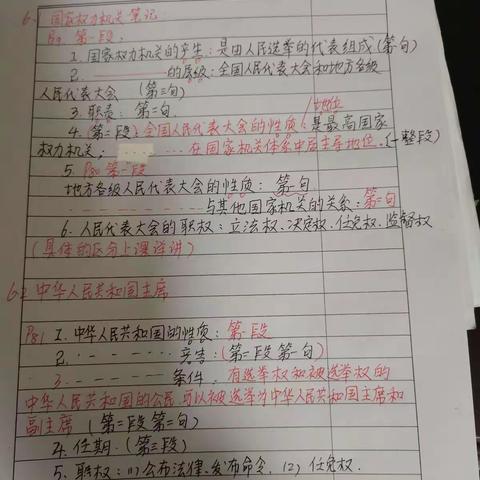 6.1 国家权力机关笔记
P79 第一段.
1. 国家权力机关的产生: 是由人民选举的代表组成(第一句)
2. ————的层级: 全国人民代表大会和地方各级
人民代表大会 (第二句)
3. 职责: 第三句.
/地位
4. (第二段) 全国人民代表大会的性质: 是最高国家
权力机关; …… 在国家机关体系中居主导地位. (一整段)
5. P80 第一段
地方各级人民代表大会的性质: 第一句
————与其他国家机关的关系: 第二句
6. 人民代表大会的职权: 立法权、决定权、任免权、监督权
(具体的区分上课详讲)
6.2 中华人民共和国主席
P81 1. 中华人民共和国的性质: 第一段
2. - - - - - - 产生: (第二段 第一句)
3. - - - - - - 条件. 有选举权和被选举权的
中华人民共和国的公民可以被选举为中华人民共和国主席和
副主席 (第二段第二句)
4. 任期. (第三段)
5. 职权: (1) 公布法律、发布命令. (2) 任免权.